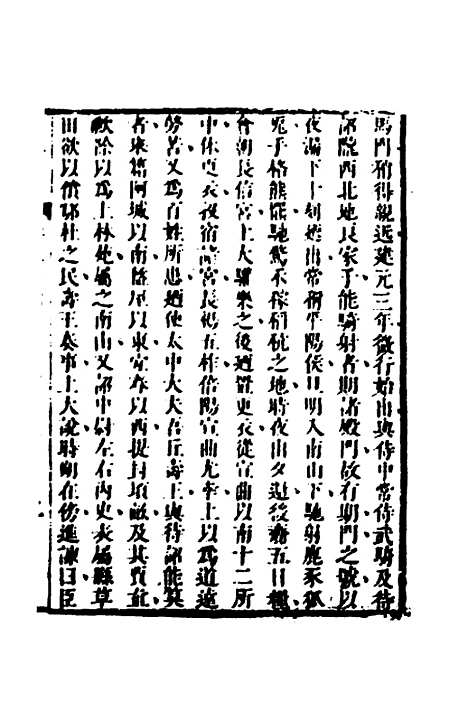 馬門稍得親近建元三年微行始出與侍中常侍武騎及待
詔隴西北地良家子能騎射者期諸殿門故有期門之號以
夜漏下十刻廼出常稱平陽侯旦明入南山下馳射鹿豕狐
兎手格熊羆馳騖禾稼稻秔之地時夜出夕還後齎五日糧
會朝長信宮上大驩樂之後廼置更衣從宣曲以南十二所
中休更衣夜宿諸宮長楊五柞倍陽宣曲尤幸上以爲道遠
勞苦又爲百姓所患廼使太中大夫吾丘壽王與待詔能算
者來籍阿城以南盩厔以東宜春以西提封頃畝及其賈直
欲除以爲上林苑屬之南山又詔中尉左右內史表屬縣草
田欲以償鄠杜之民壽王奏事上大說時朔在傍進諫曰臣